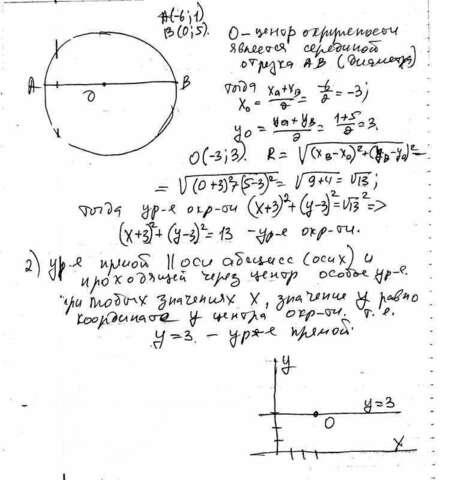 A(-6; 1)
B(0; 5).
A
B
O
O - центр окружности
является серединой
отрезка AB (диаметра)
тогда
x₀ = (xₐ + x_B)/2 = -6/2 = -3;
y₀ = (yₐ + y_B)/2 = (1+5)/2 = 3.
O(-3; 3). R = √((x_B - x₀)² + (y_B - y₀)²) =
= √((0+3)² + (5-3)²) = √(9+4) = √13;
тогда ур-е окр-ти (x+3)² + (y-3)² = √13² =>
(x+3)² + (y-3)² = 13 - ур-е окр-ти.
2) ур-е прямой || оси абсцисс (оси x) и
проходящей через центр особое ур-е.
при любых значениях x, значение y равно
координате y центра окр-ти. т.е.
y = 3 - ур-е прямой.
y
y = 3
O
x